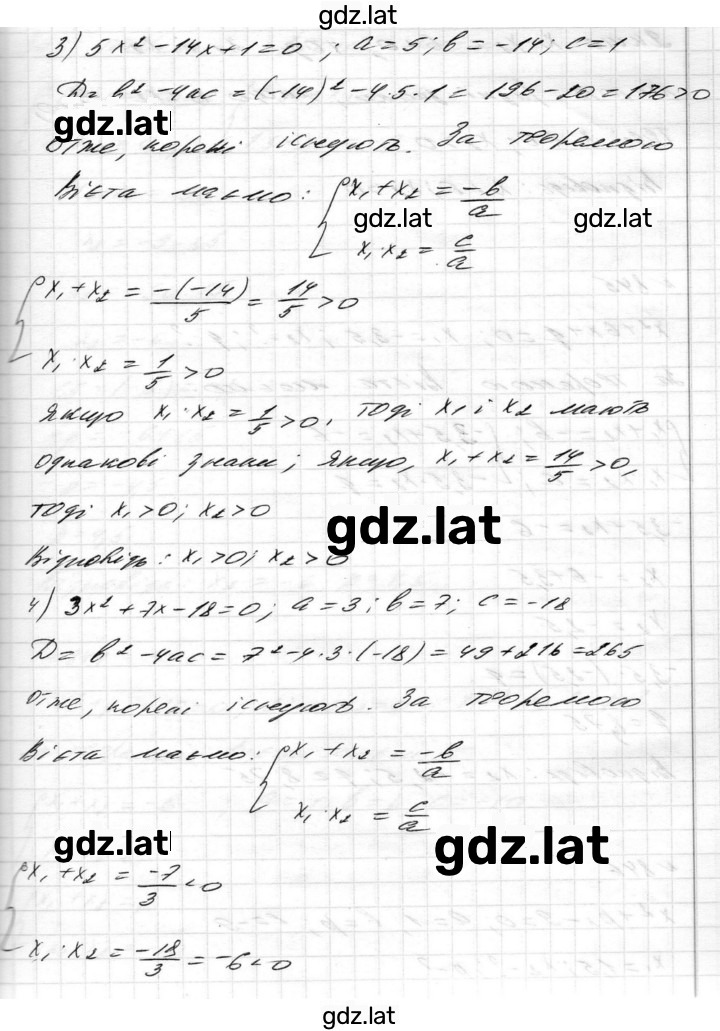 gdz.lat
3) 5x² - 14x + 1 = 0 ; a = 5 ; b = -14 ; c = 1
D = b² - 4ac = (-14)² - 4·5·1 = 196 - 20 = 176 > 0
gdz.lat
отже, корені існують. За теоремою
Вієта маємо: { x₁ + x₂ = -b/a
gdz.lat gdz.lat
x₁·x₂ = c/a
{ x₁ + x₂ = -(-14)/5 = 14/5 > 0
x₁·x₂ = 1/5 > 0
Якщо x₁·x₂ = 1/5 > 0, тоді x₁ і x₂ мають
однакові знаки; якщо, x₁ + x₂ = 14/5 > 0,
тоді x₁ > 0; x₂ > 0
gdz.lat
Відповідь: x₁ > 0; x₂ > 0
4) 3x² + 7x - 18 = 0; a = 3; b = 7; c = -18
D = b² - 4ac = 7² - 4·3·(-18) = 49 + 216 = 265
Отже, корені існують. За теоремою
Вієта маємо: { x₁ + x₂ = -b/a
x₁·x₂ = c/a
gdz.lat gdz.lat
{ x₁ + x₂ = -7/3 < 0
x₁·x₂ = -18/3 = -6 < 0
gdz.lat